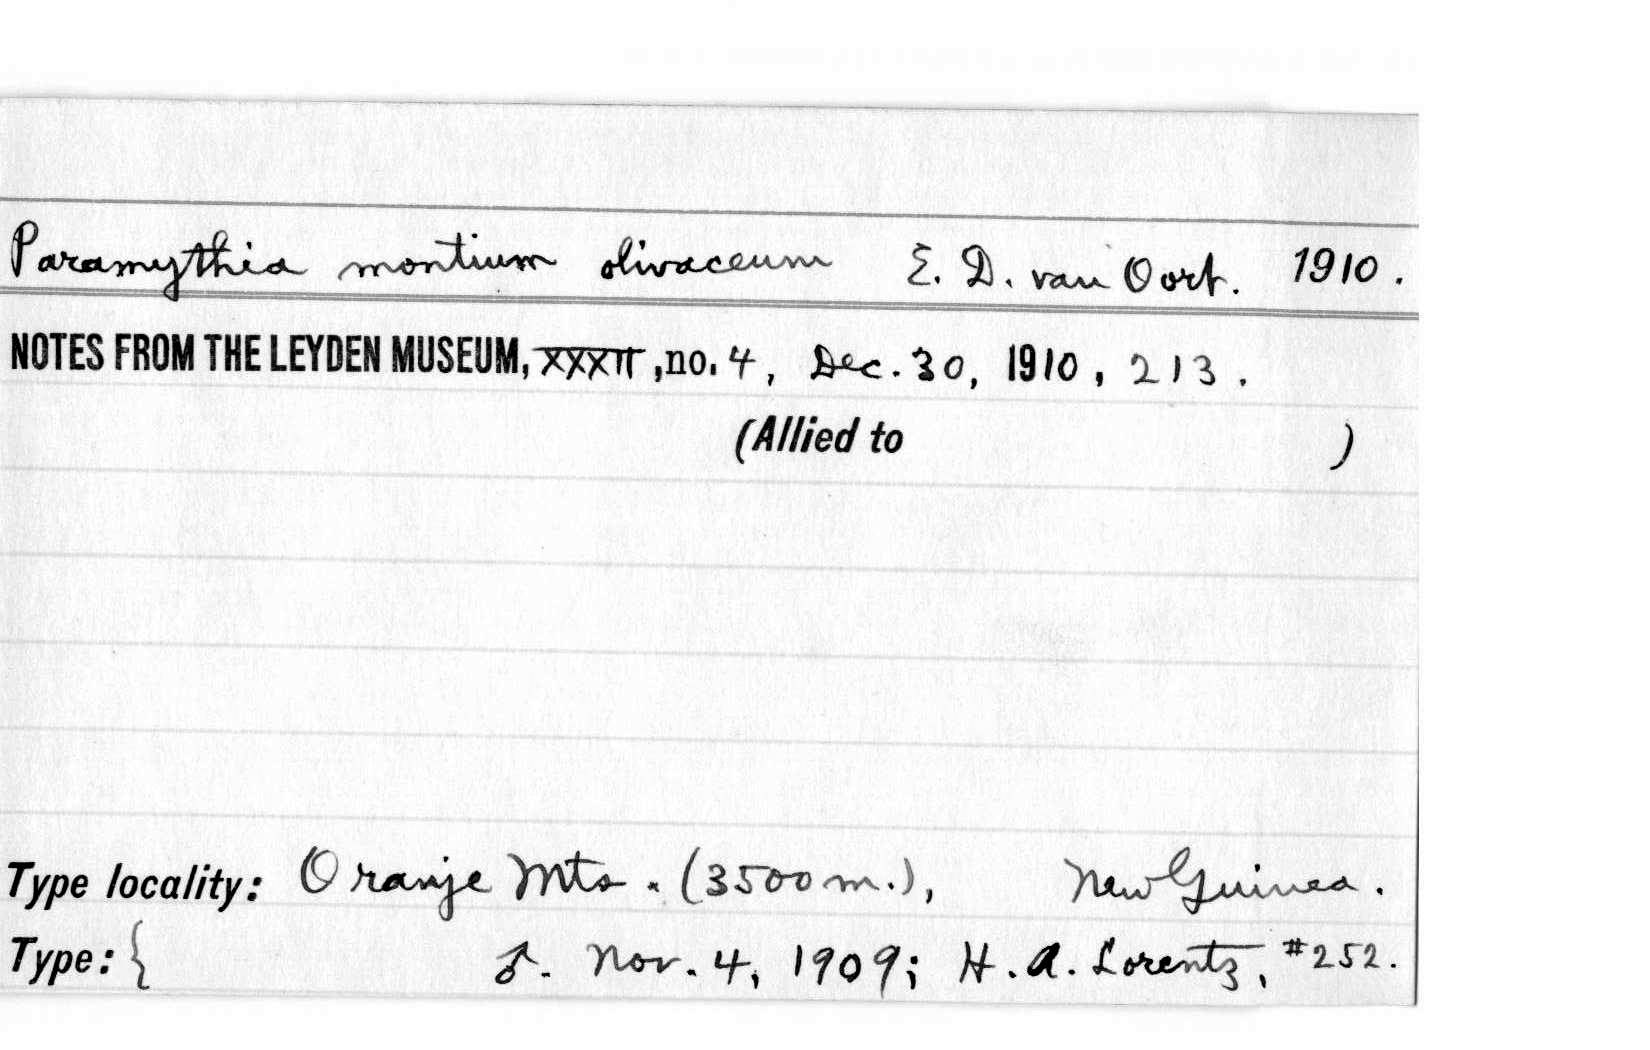 Paramythia montium olivaceum E. D. van Oort. 1910.
NOTES FROM THE LEYDEN MUSEUM, XXXII, no. 4, Dec. 30, 1910, 213.
(Allied to )
Type locality: Oranje Mts. (3500 m.), New Guinea.
Type: { ♂. Nov. 4, 1909; H. A. Lorentz, #252.